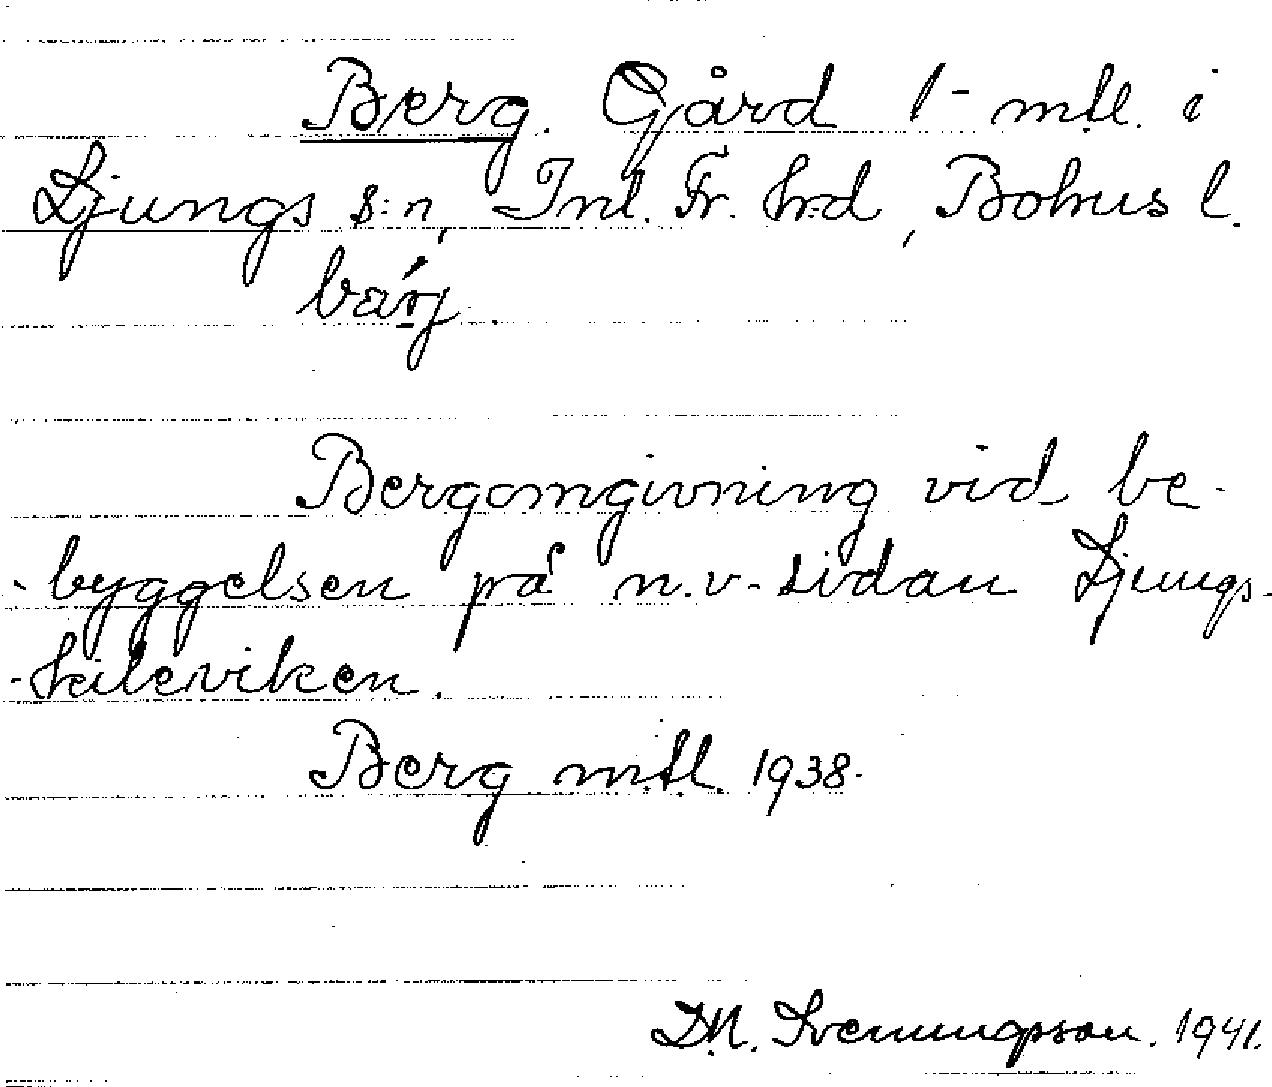 Berg. Gård 1 - mtl. i
Ljungs s:n, Inl. Fr. h:d, Bohus l.
bärj.
Bergomgivning vid be-
-byggelsen på n.v-sidan Ljungs-
-kileviken.
Berg m.t.l. 1938.
D.N. Svenungsson. 1941.